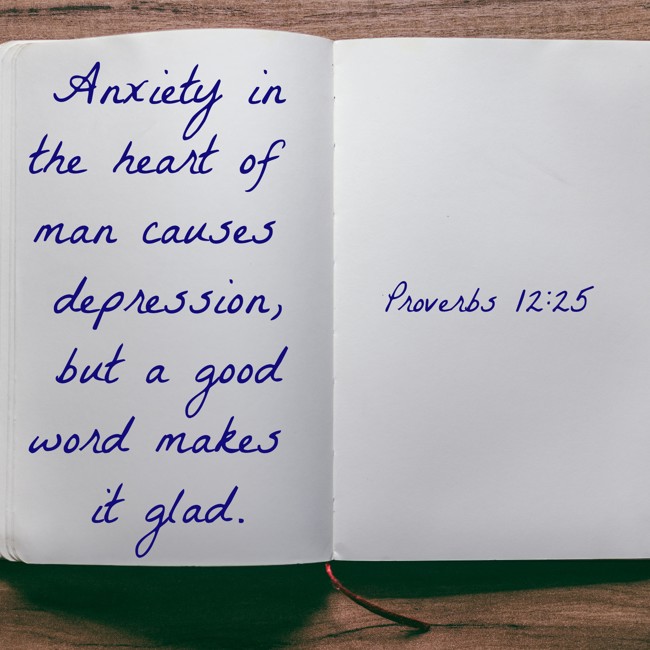 Anxiety in
the heart of
man causes
depression,
but a good
word makes
it glad.
Proverbs 12:25